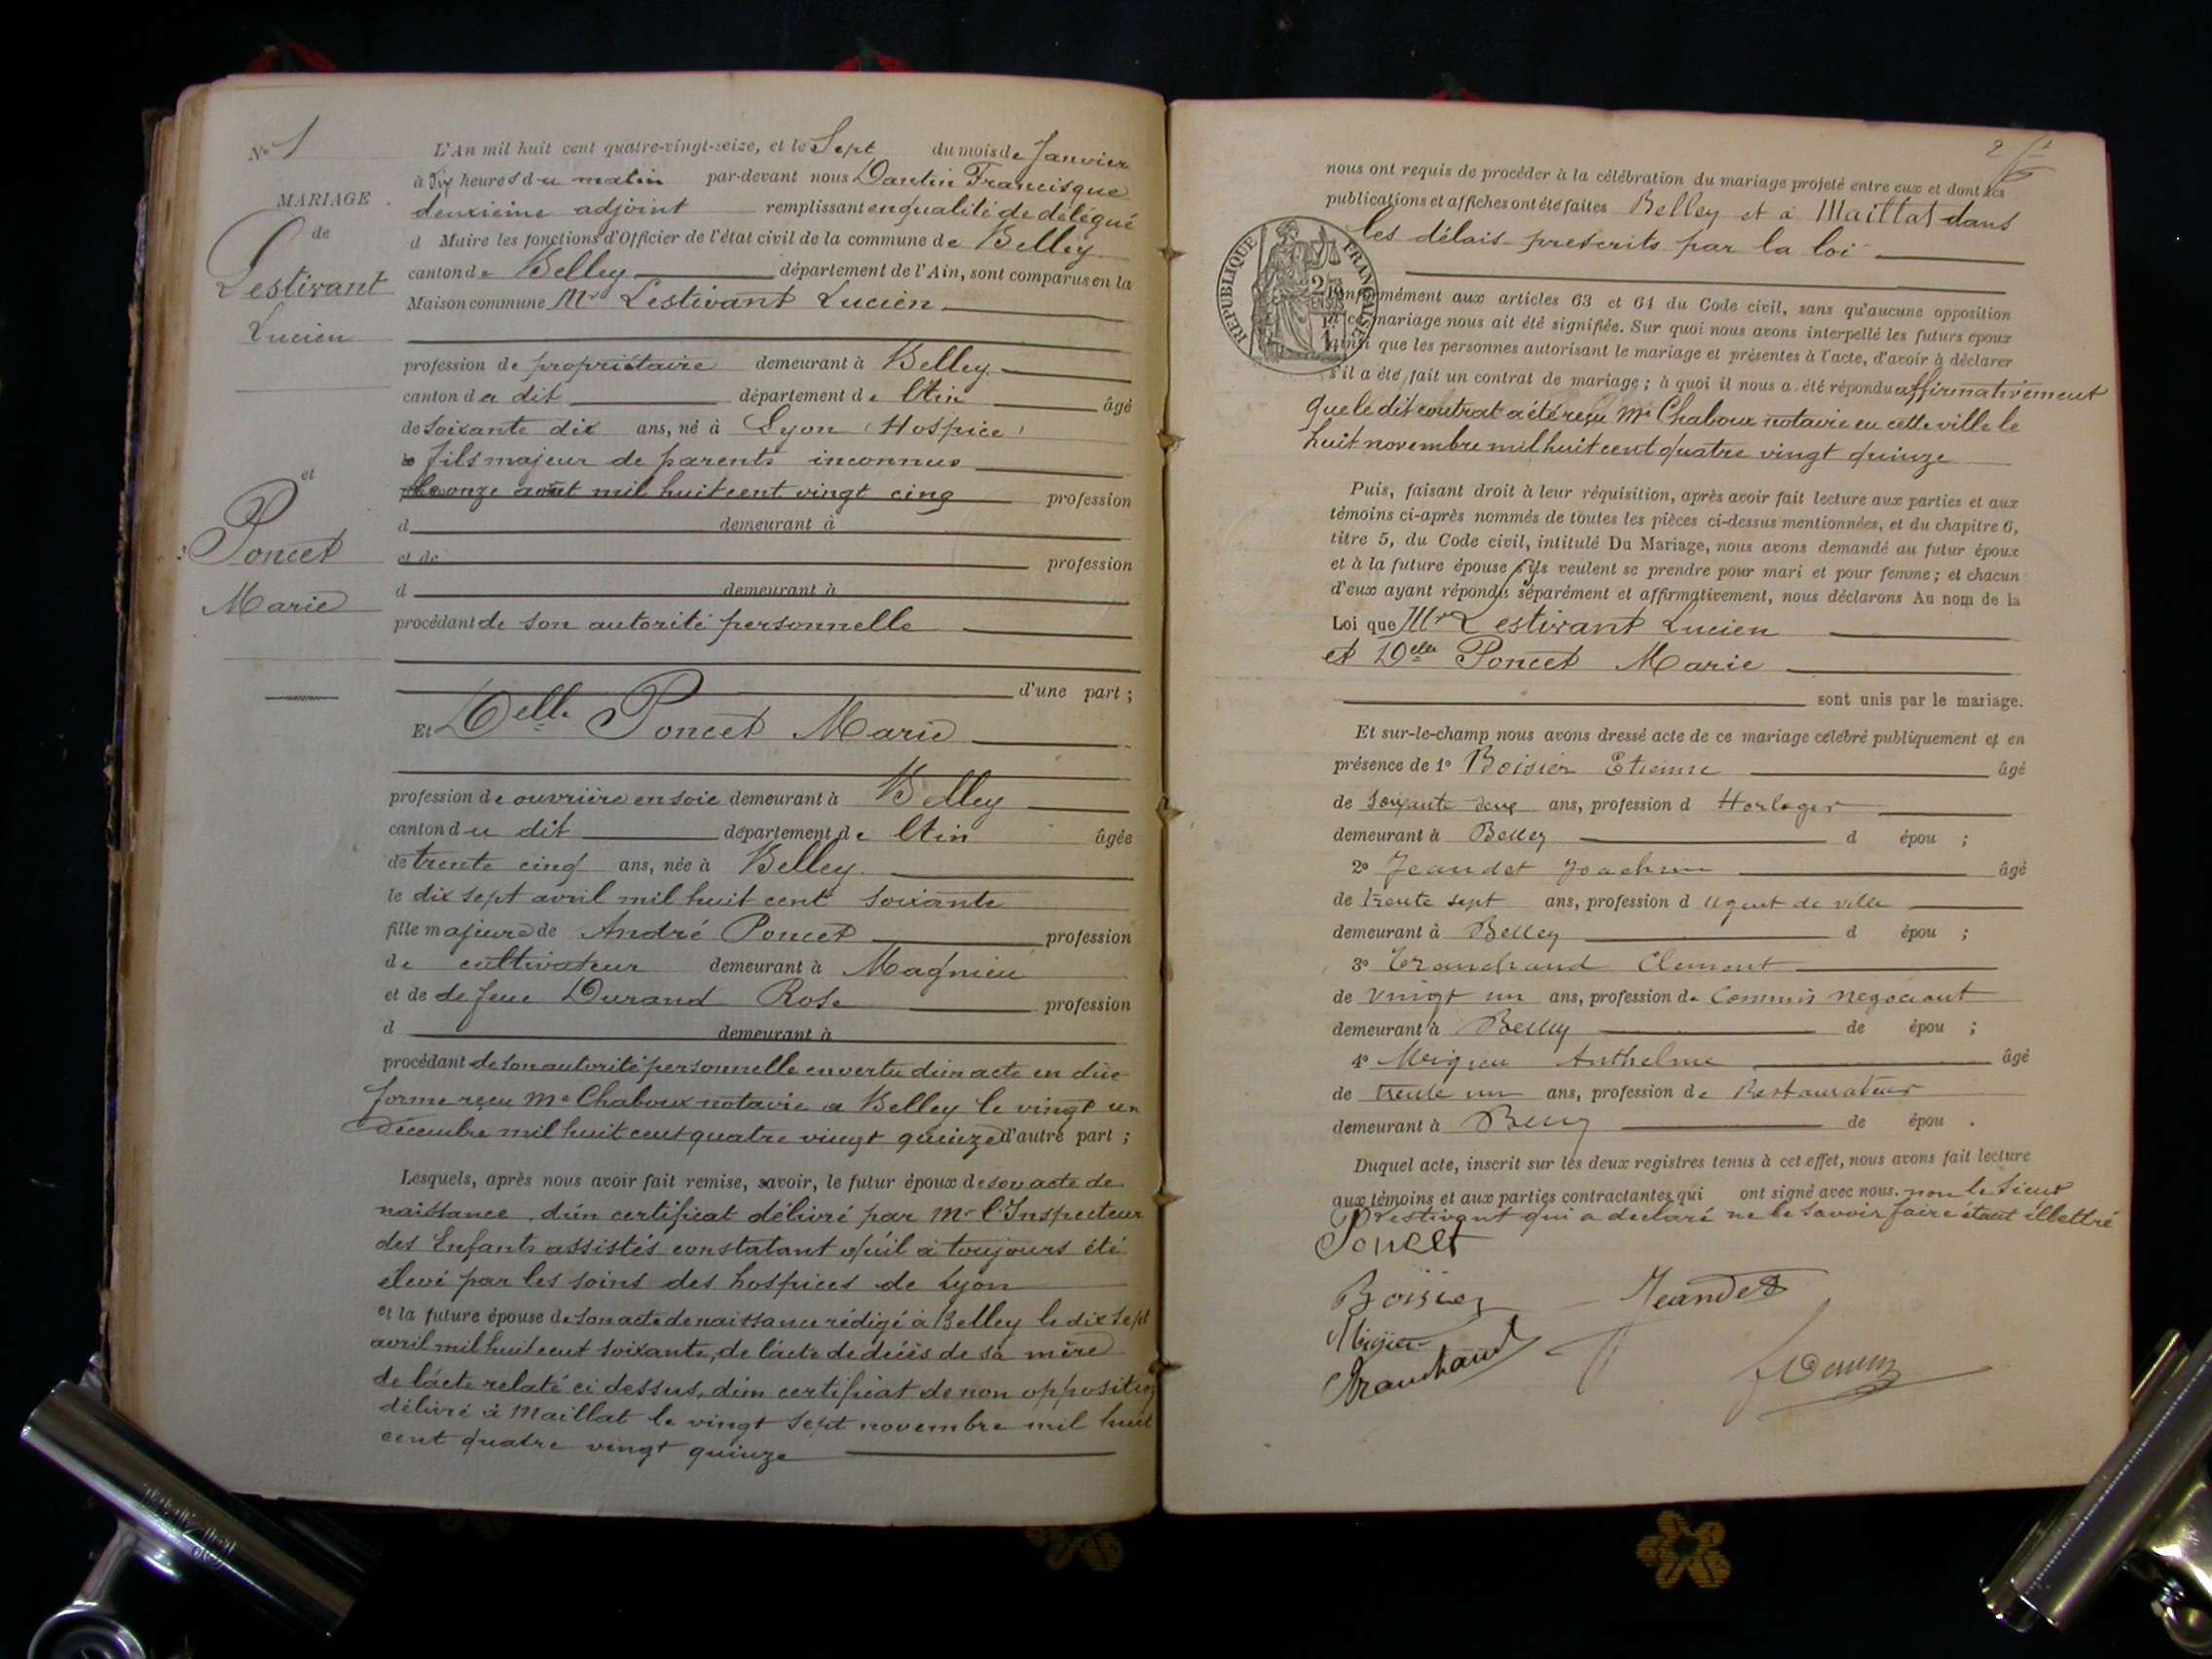 No 1
L'An mil huit cent quatre-vingt-seize, et le Sept du mois de Janvier
à heures du matin par-devant nous Dantin Francisque
deuxième adjoint remplissant en qualité de délégué
d Maire les fonctions d'Officier de l'état civil de la commune de Belley
canton de Belley département de l'Ain, sont comparus en la
Maison commune Mr Lestivant Lucien
profession de propriétaire demeurant à Belley
canton du dit département de l'Ain âgé
de soixante dix ans, né à Lyon (Hospice)
fils majeur de parents inconnus
le onze août mil huit cent vingt cinq profession
d demeurant à
et de profession
d demeurant à
procédant de son autorité personnelle
d'une part ;
MARIAGE
de
Lestivant
Lucien
et
Poncet
Marie
Et Delle Poncet Marie
profession de ouvrière en soie demeurant à Belley
canton du dit département de l'Ain âgée
de trente cinq ans, née à Belley
le dix sept avril mil huit cent soixante
fille majeure de André Poncet profession
de cultivateur demeurant à Magnieu
et de defeue Durand Rose profession
d demeurant à
procédant de son autorité personnelle en vertu d'un acte en due
forme reçu Me Chaboux notaire a Belley le vingt un
Décembre mil huit cent quatre vingt quinze d'autre part ;
Lesquels, après nous avoir fait remise, savoir, le futur époux de son acte de
naissance, d'un certificat délivré par Mr l'Inspecteur
des Enfants assistés constatant qu'il a toujours été
élevé par les soins des hospices de Lyon
et la future épouse de son acte de naissance rédigé à Belley le dix sept
avril mil huit cent soixante, de l'acte de décès de sa mère
de l'acte relaté ci dessus, d'un certificat de non opposition
délivré à Maillat le vingt sept novembre mil huit
cent quatre vingt quinze
2
nous ont requis de procéder à la célébration du mariage projeté entre eux et dont les
publications et affiches ont été faites Belley et à Maillat dans
les délais prescrits par la loi
RÉPUBLIQUE FRANÇAISE
conformément aux articles 63 et 64 du Code civil, sans qu'aucune opposition
à ce mariage nous ait été signifiée. Sur quoi nous avons interpellé les futurs époux
ainsi que les personnes autorisant le mariage et présentes à l'acte, d'avoir à déclarer
s'il a été fait un contrat de mariage ; à quoi il nous a été répondu affirmativement
que le dit contrat a été reçu Me Chaboux notaire en cette ville le
huit novembre mil huit cent quatre vingt quinze
Puis, faisant droit à leur réquisition, après avoir fait lecture aux parties et aux
témoins ci-après nommés de toutes les pièces ci-dessus mentionnées, et du chapitre 6,
titre 5, du Code civil, intitulé Du Mariage, nous avons demandé au futur époux
et à la future épouse s'ils veulent se prendre pour mari et pour femme ; et chacun
d'eux ayant répondu séparément et affirmativement, nous déclarons Au nom de la
Loi que Mr Lestivant Lucien
et Delle Poncet Marie
sont unis par le mariage.
Et sur-le-champ nous avons dressé acte de ce mariage célébré publiquement et en
présence de 1° Boisier Etienne âgé
de soixante deux ans, profession d Horloger
demeurant à Belley d épou ;
2° Jeandet Joachim âgé
de trente sept ans, profession d agent de ville
demeurant à Belley d épou ;
3° Tranchand Clement
de vingt un ans, profession de Commis négociant
demeurant à Belley de épou ;
4° Anthelme âgé
de trente un ans, profession de Restaurateur
demeurant à Belley de épou .
Duquel acte, inscrit sur les deux registres tenus à cet effet, nous avons fait lecture
aux témoins et aux parties contractantes qui ont signé avec nous. non le sieur
Lestivant qui a declaré ne le savoir faire étant illettré
Poncet
Boisier Jeandet
Tranchand